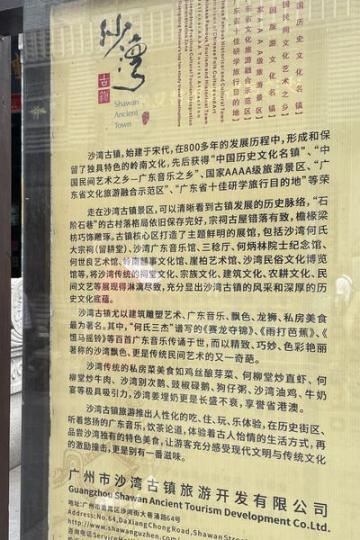 沙湾
古镇
Shawan
Ancient
Town
中国历史文化名镇
中国民间文化艺术之乡
国家AAAA级旅游景区
广东省旅游文化名镇
广东省文化旅游融合示范区
广东省十佳研学旅行目的地
沙湾古镇,始建于宋代,在800多年的发展历程中,形成和保
留了独具特色的岭南文化,先后获得“中国历史文化名镇”、“中
国民间艺术之乡—广东音乐之乡”、国家AAAA级旅游景区”、“广
东省文化旅游融合示范区”、“广东省十佳研学旅行目的地”等荣
走在沙湾古镇景区,可以清晰看到古镇发展的历史脉络,“石
阶石巷”的古村落格局依旧保存完好,宗祠古屋错落有致,檐椽梁
枋巧饰雕琢。古镇核心区打造了主题鲜明的展馆,包括沙湾何氏
大宗祠(留耕堂)、沙湾广东音乐馆、三稔厅、何炳林院士纪念馆、
何世良艺术馆、岭南麒事文化馆、崖柏艺术馆、沙湾民俗文化博览
馆等,将沙湾传统的祠堂文化、宗族文化、建筑文化、农耕文化、民
间文艺等展现得淋漓尽致,充分显出沙湾古镇的风采和深厚的历
史文化底蕴。
沙湾古镇尤以建筑雕塑艺术、广东音乐、飘色、龙狮、私房美食
最为著名。其中,“何氏三杰”谱写的《赛龙夺锦》、《雨打芭蕉》、《
饿马摇铃》等百首广东音乐传诵于世,而以精致、巧妙、色彩艳丽
著称的沙湾飘色,更是传统民间艺术的又一奇葩。
沙湾传统的私房菜美食如鸡丝酿芽菜、何柳堂炒直虾、何
柳堂炒牛肉、沙湾别次鹅、豉椒碌鹅、狗仔粥、沙湾油鸡、牛奶
宴等极具吸引力,沙湾姜埋奶更是长盛不衰,享誉省港澳。
沙湾古镇旅游推出人性化的吃、住、玩、乐体验,在历史街区、
听着悠扬的广东音乐,饮茶论道,体验着古人怡情的生活方式,再
品尝沙湾独有的特色美食,让游客充分感受现代文明与传统文化
的激励撞击,更是别有一番滋味。
广州市沙湾古镇旅游开发有限公司
Guangzhou Shawan Ancient Tourism Development Co. Ltd.
地址:广州市番禺区沙湾街大巷涌路64号
Address:No.64,DaXiangChong Road,Shawan Street
http://www.shawanguzhen.com/